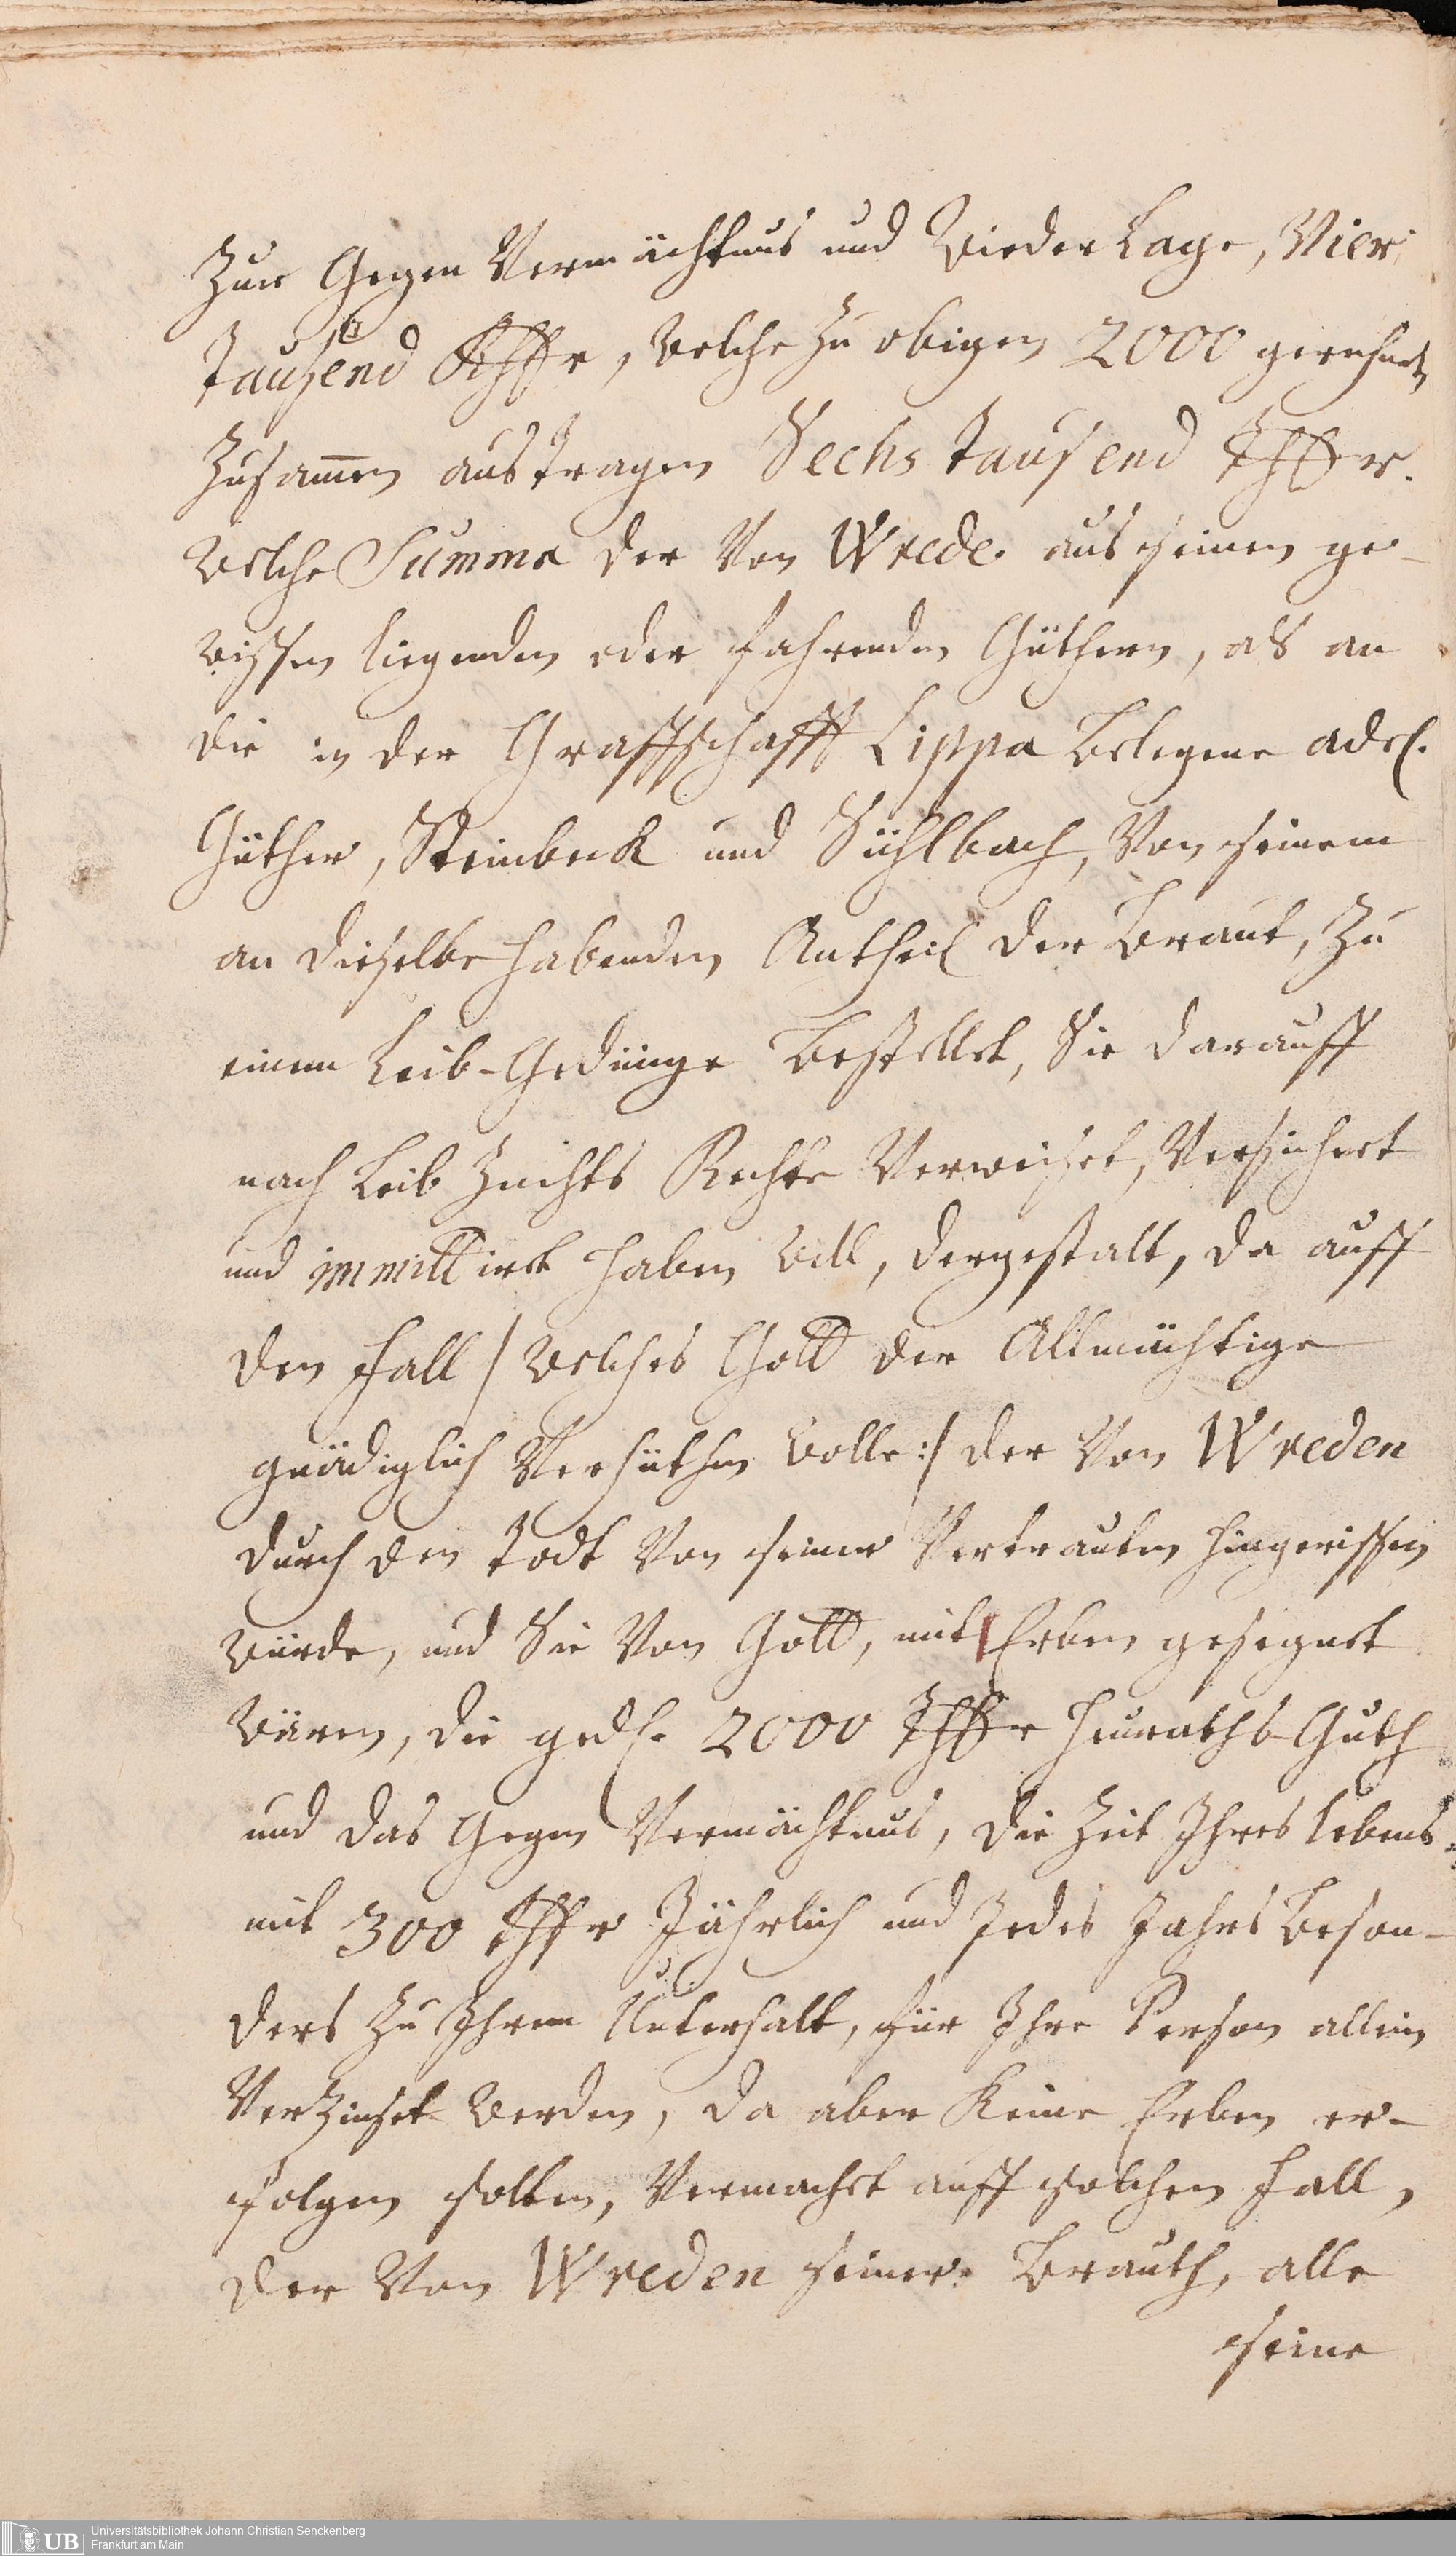 Zur Gegen Vermächtnus und Wieder Lage, Vier
tausend Rthlr, welche zu obigen 2000 gerechnet
zusam̅en austragen Sechs tausend Thlr.
welche Summa der Von Wrede aus seinen ge-
wissen liegenden oder fahrenden Güthern, als an
die in der Graffschafft Lippa belegene adel.
Güther, Steinbeck und Sühlbach, Von seinem
an dieselbe habenden Antheil der Braut, zu
einem Leib-Gedünge bestellet, Sie darauff
nach Leib Zuchts Rechte Verweiset, Versichert
und immittirt haben will, dergestalt, da auff
den fall / welches Gott der Allmächtige
gnädiglich Verhüthen wolle :/ der Von Wreden
durch den todt Von seiner Vertrauten hingerissen
würde, und Sie Von Gott, mit Erben gesegnet
wären, die gedl. 2000 Thlr Heuraths-Guth
und das Gegen Vermächtnus, die Zeit Ihres lebens
mit 300 Thlr Jährlich und Jedes Jahrs beson-
ders zu Ihrem Unterhalt, für Ihre Person allein
Verzinset werden, da aber keine Erben er-
folgen solten, Vermachet auff solchen fall,
der Von Wreden seiner Brauth, alle
seine
Universitätsbibliothek Johann Christian Senckenberg
UB Frankfurt am Main